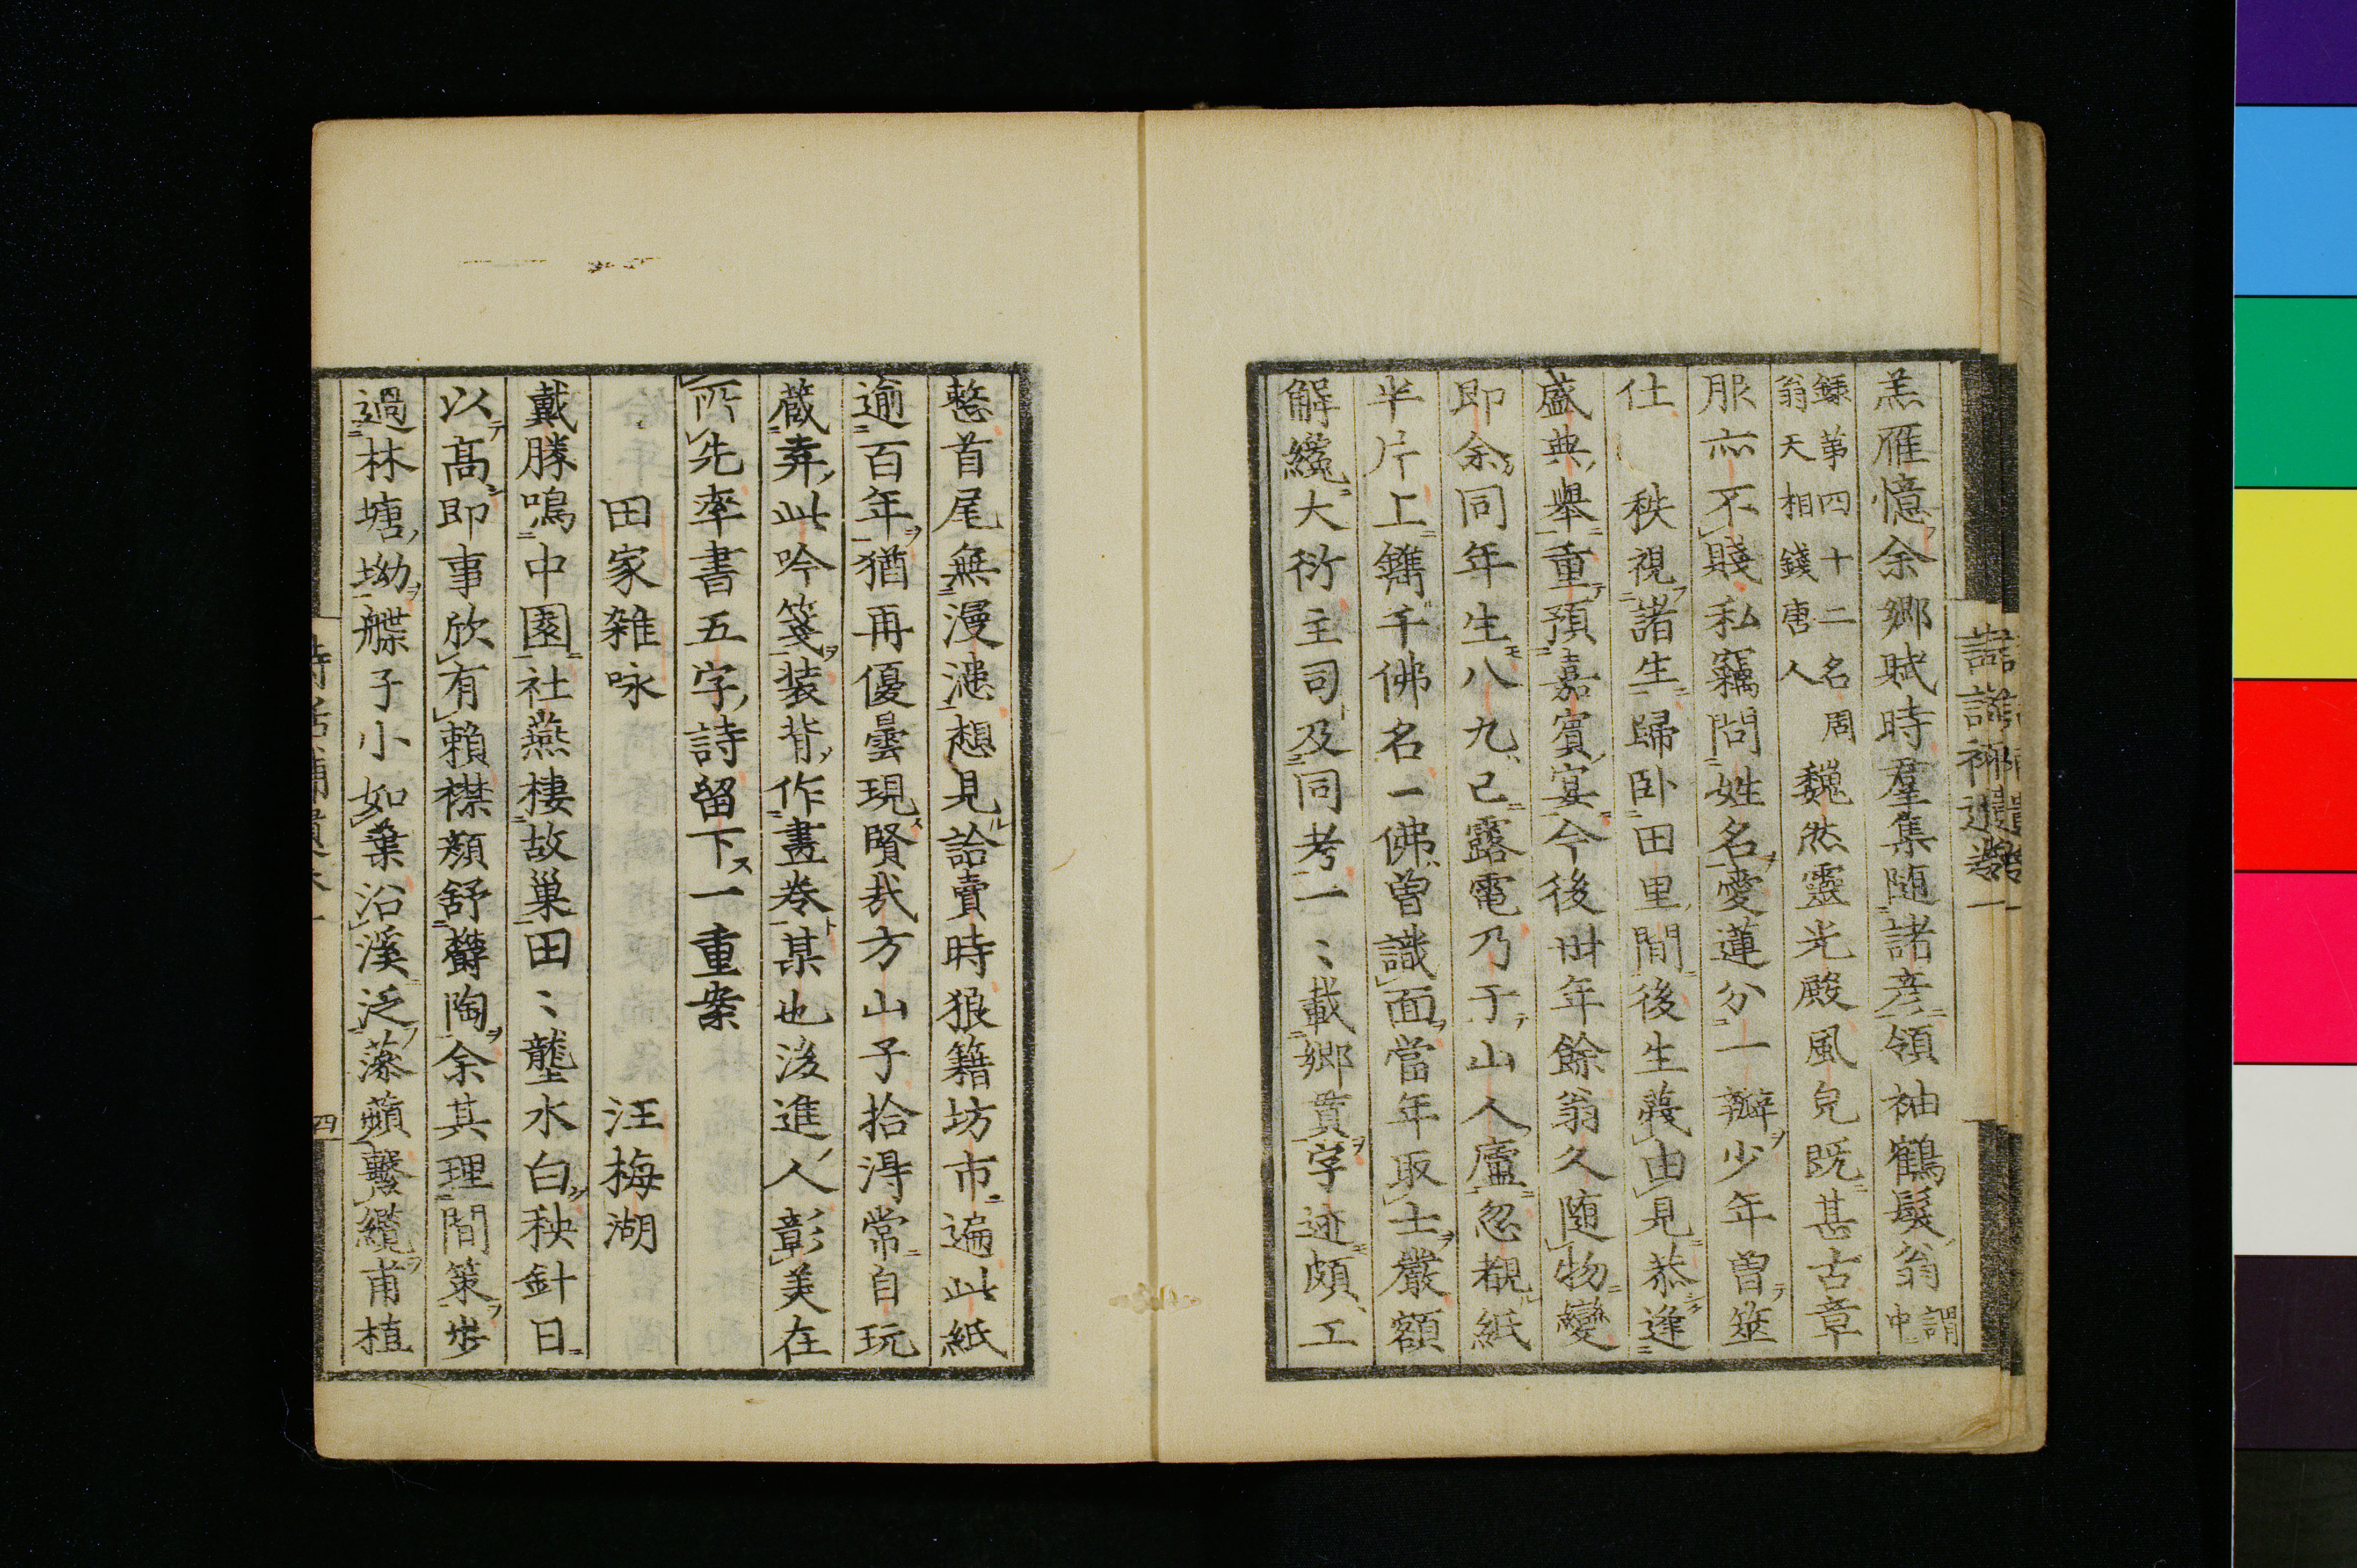 羔雁憶余鄉賦時羣集随諸彦領袖鶴髮翁謂中
錄苐四十二名周翁天相錢唐人
巍然靈光殿風皃既甚古章
服亦不賤私竊問姓名愛蓮分一瓣少年曽筮
仕 秩視諸生歸卧田里閒後生蔑由見恭逢
盛典舉重預嘉賓宴今後丗年餘翁久随物變
即余同年生八九已露電乃于山人廬忽覩紙
半片工鐫千佛名一佛曽識面當年取士嚴額
解纔大衍主司及同考一〻載鄉貫字迹頗工
整首尾無漫漶想見詅賣時狼籍坊市遍此紙
逾百年猶再優曇現賢㦲方山子拾淂常自玩
蔵弆此吟箋装背作畫卷某也後進人彰美在
所先率書五字詩留下一重案
田家雑咏 汪梅湖
戴勝鳴中園社燕棲故巢田〻壟水白秧針日
以髙即事欣有賴襟顔舒欝陶余其理閒策歩
過林塘坳艓子小如葉沿溪泛藻蘋繫纜甫植
四